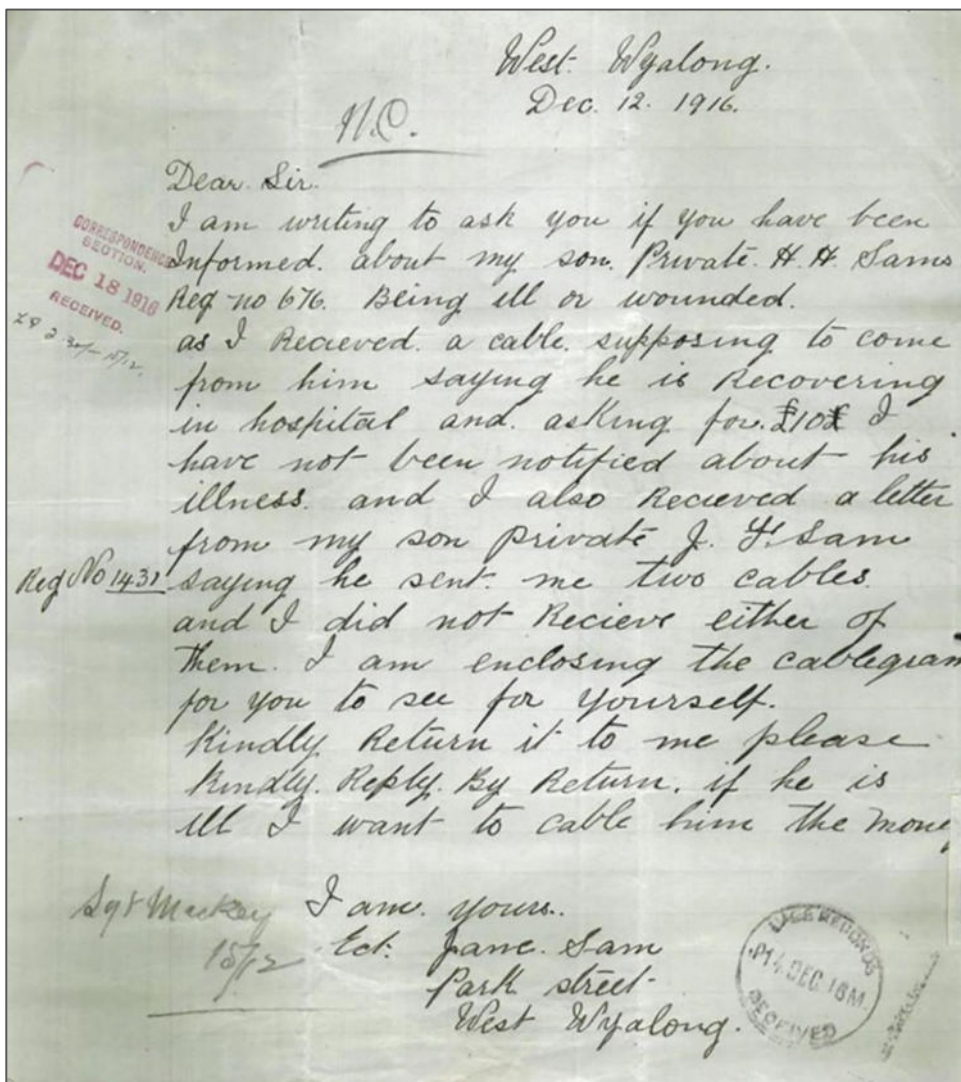 West. Wyalong.
Dec. 12. 1916.
N.C.
Dear. Sir.
I am writing to ask you if you have been
Informed. about my son. Private. H. H. Sams
Reg no 676. Being ill or wounded.
as I Recieved. a cable. supposing to come
from him saying he is Recovering
in hospital and. asking for. £10£ I
have not been notified about his
illness. and I also Recieved a letter
from my son private J. F. Sam
Reg No 1431 saying he sent. me two cables.
and I did not Recieve either of
them. I am enclosing the cablegram
for you to see for yourself.
Kindly Return it to me please
Kindly. Reply. By Return. if he is
ill I want to cable him the mone
I am. yours.
Ect. Jane. Sam
Park street
West Wyalong.
CORRESPONDENCE
SECTION.
DEC 18 1916
RECEIVED.
Sgt Mackey
15/12
RECORDS
14 DEC. 16
RECEIVED